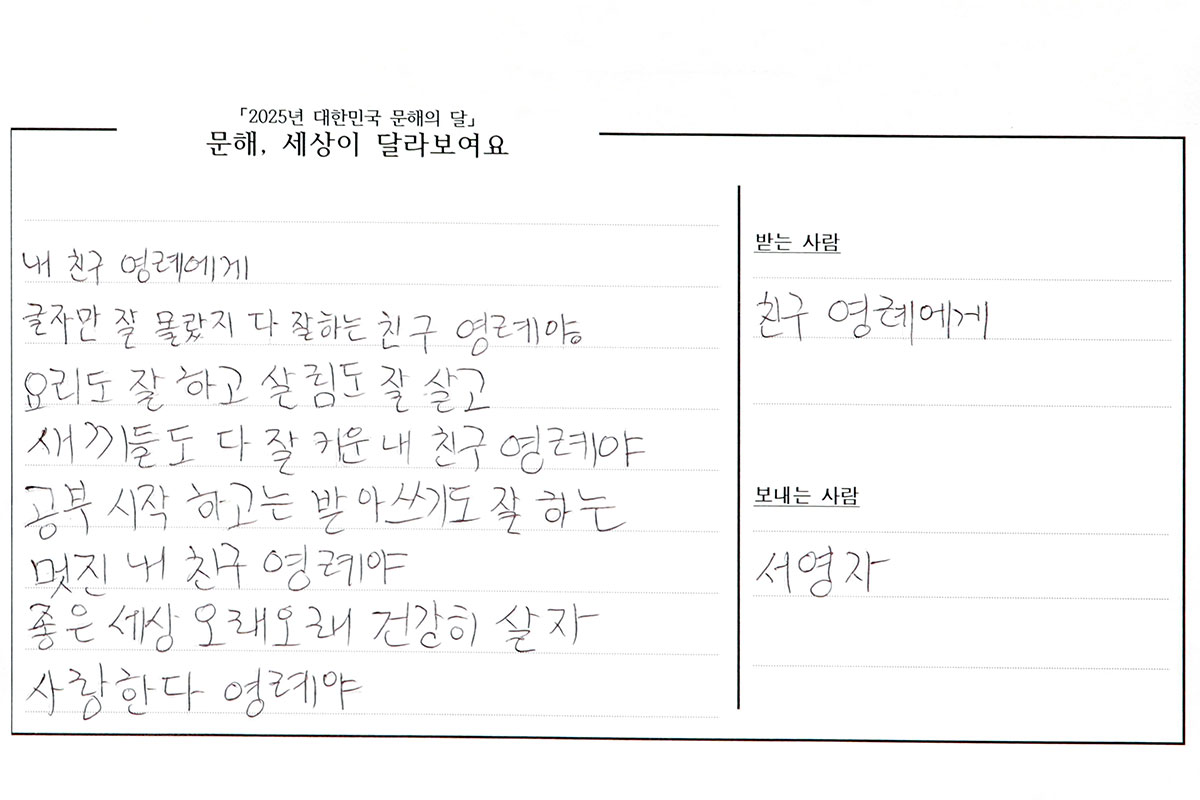 「2025년 대한민국 문해의 달」
문해, 세상이 달라보여요
내 친구 영례에게
글자만 잘 몰랐지 다 잘하는 친구 영례야。
요리도 잘 하고 살림도 잘 살고
새끼들도 다 잘 키운 내 친구 영례야
공부 시작 하고는 받아쓰기도 잘 하는
멋진 내 친구 영례야
좋은 세상 오래오래 건강히 살자
사랑한다 영례야
받는 사람
친구 영례에게
보내는 사람
서영자